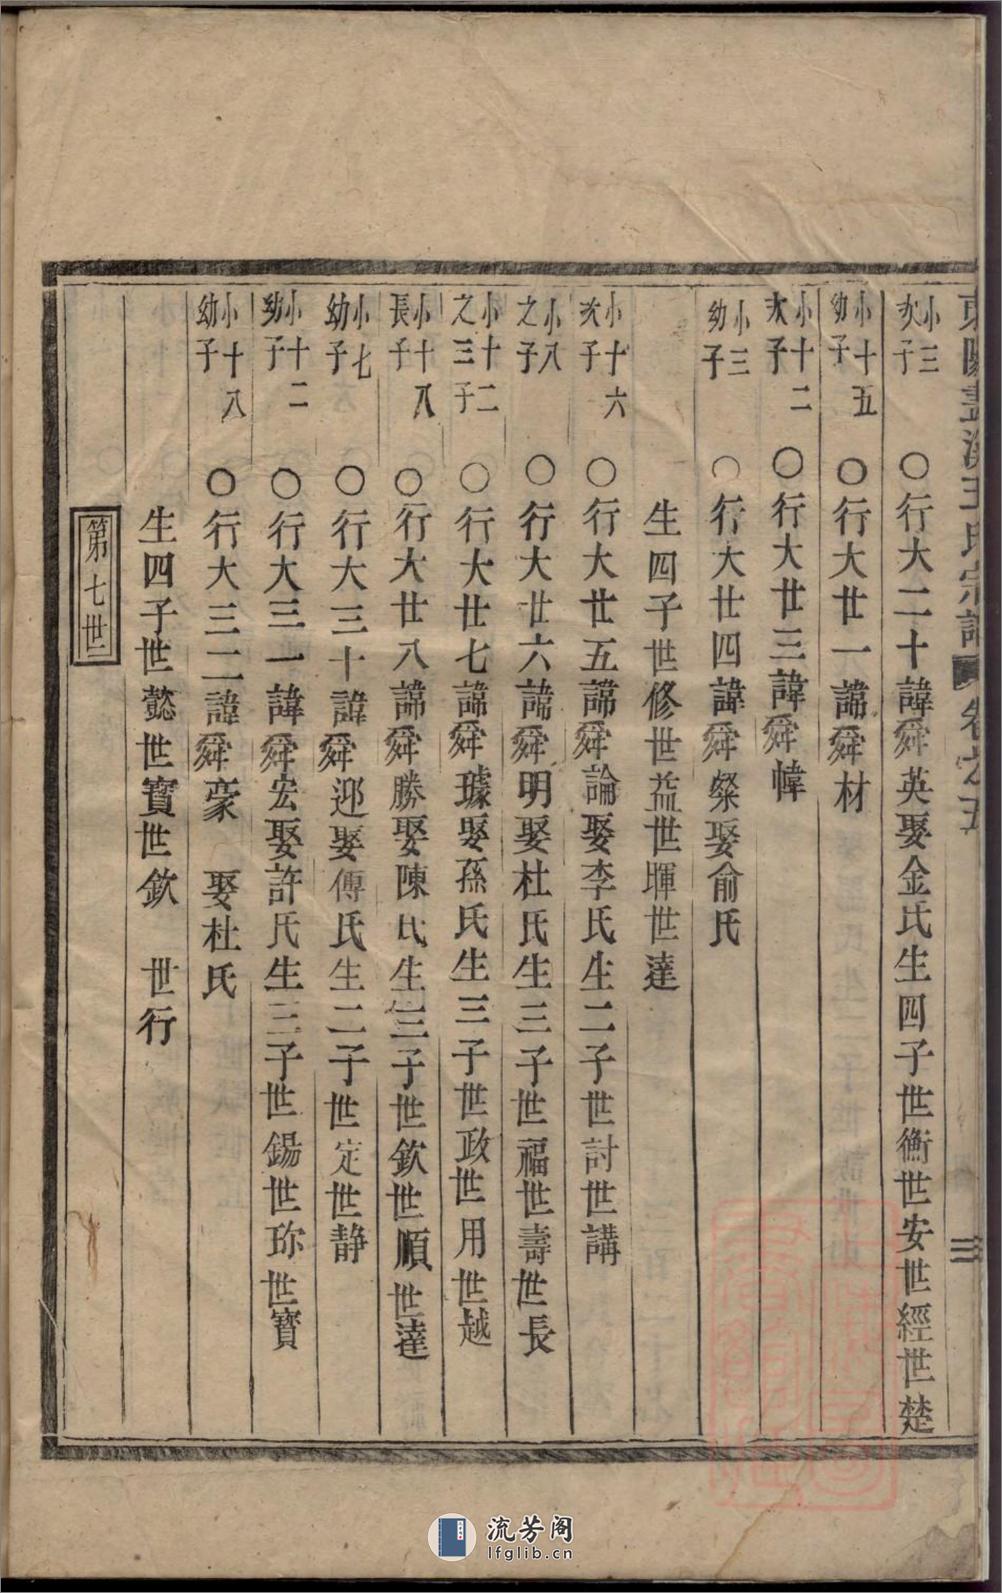 東陽畫溪王氏宗譜 卷之五 三
小三次子 ○行大二十諱舜英娶金氏生四子世衡世安世經世楚
小十五幼子 ○行大廿一諱舜材
小十二次子 ○行大廿三諱舜幃
小三幼子 ○行大廿四諱舜粲娶俞氏
生四子世修世益世暉世達
小十六次子 ○行大廿五諱舜論娶李氏生二子世討世講
小八之子 ○行大廿六諱舜明娶杜氏生三子世福世壽世長
小十二之三子 ○行大廿七諱舜璩娶孫氏生三子世政世用世越
小十八長子 ○行大廿八諱舜勝娶陳氏生三子世欽世順世達
小七幼子 ○行大三十諱舜迎娶傅氏生二子世定世静
小十二幼子 ○行大三一諱舜宏娶許氏生三子世錫世珎世寶
小十八幼子 ○行大三二諱舜豪 娶杜氏
生四子世懿世寶世欽 世行
第七世
流芳阁
lfglib.cn